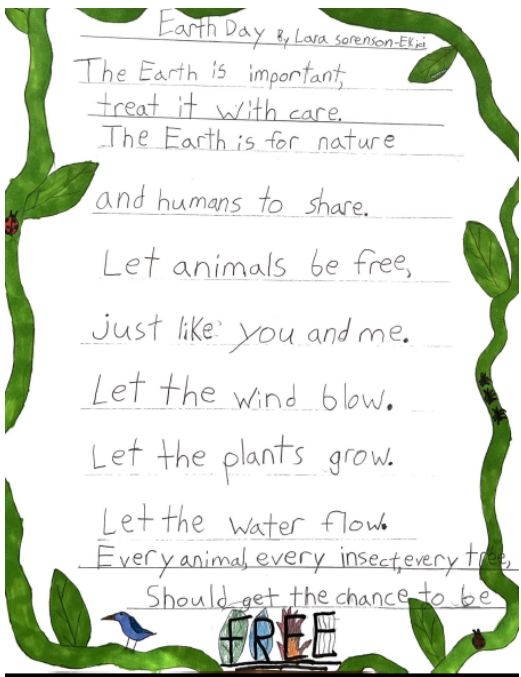 Earth Day By Lara Sorenson-Ekici
The Earth is important,
treat it with care.
The Earth is for nature
and humans to share.
Let animals be free,
just like you and me.
Let the wind blow.
Let the plants grow.
Let the water flow.
Every animal, every insect, every tree,
Should get the chance to be
FREE